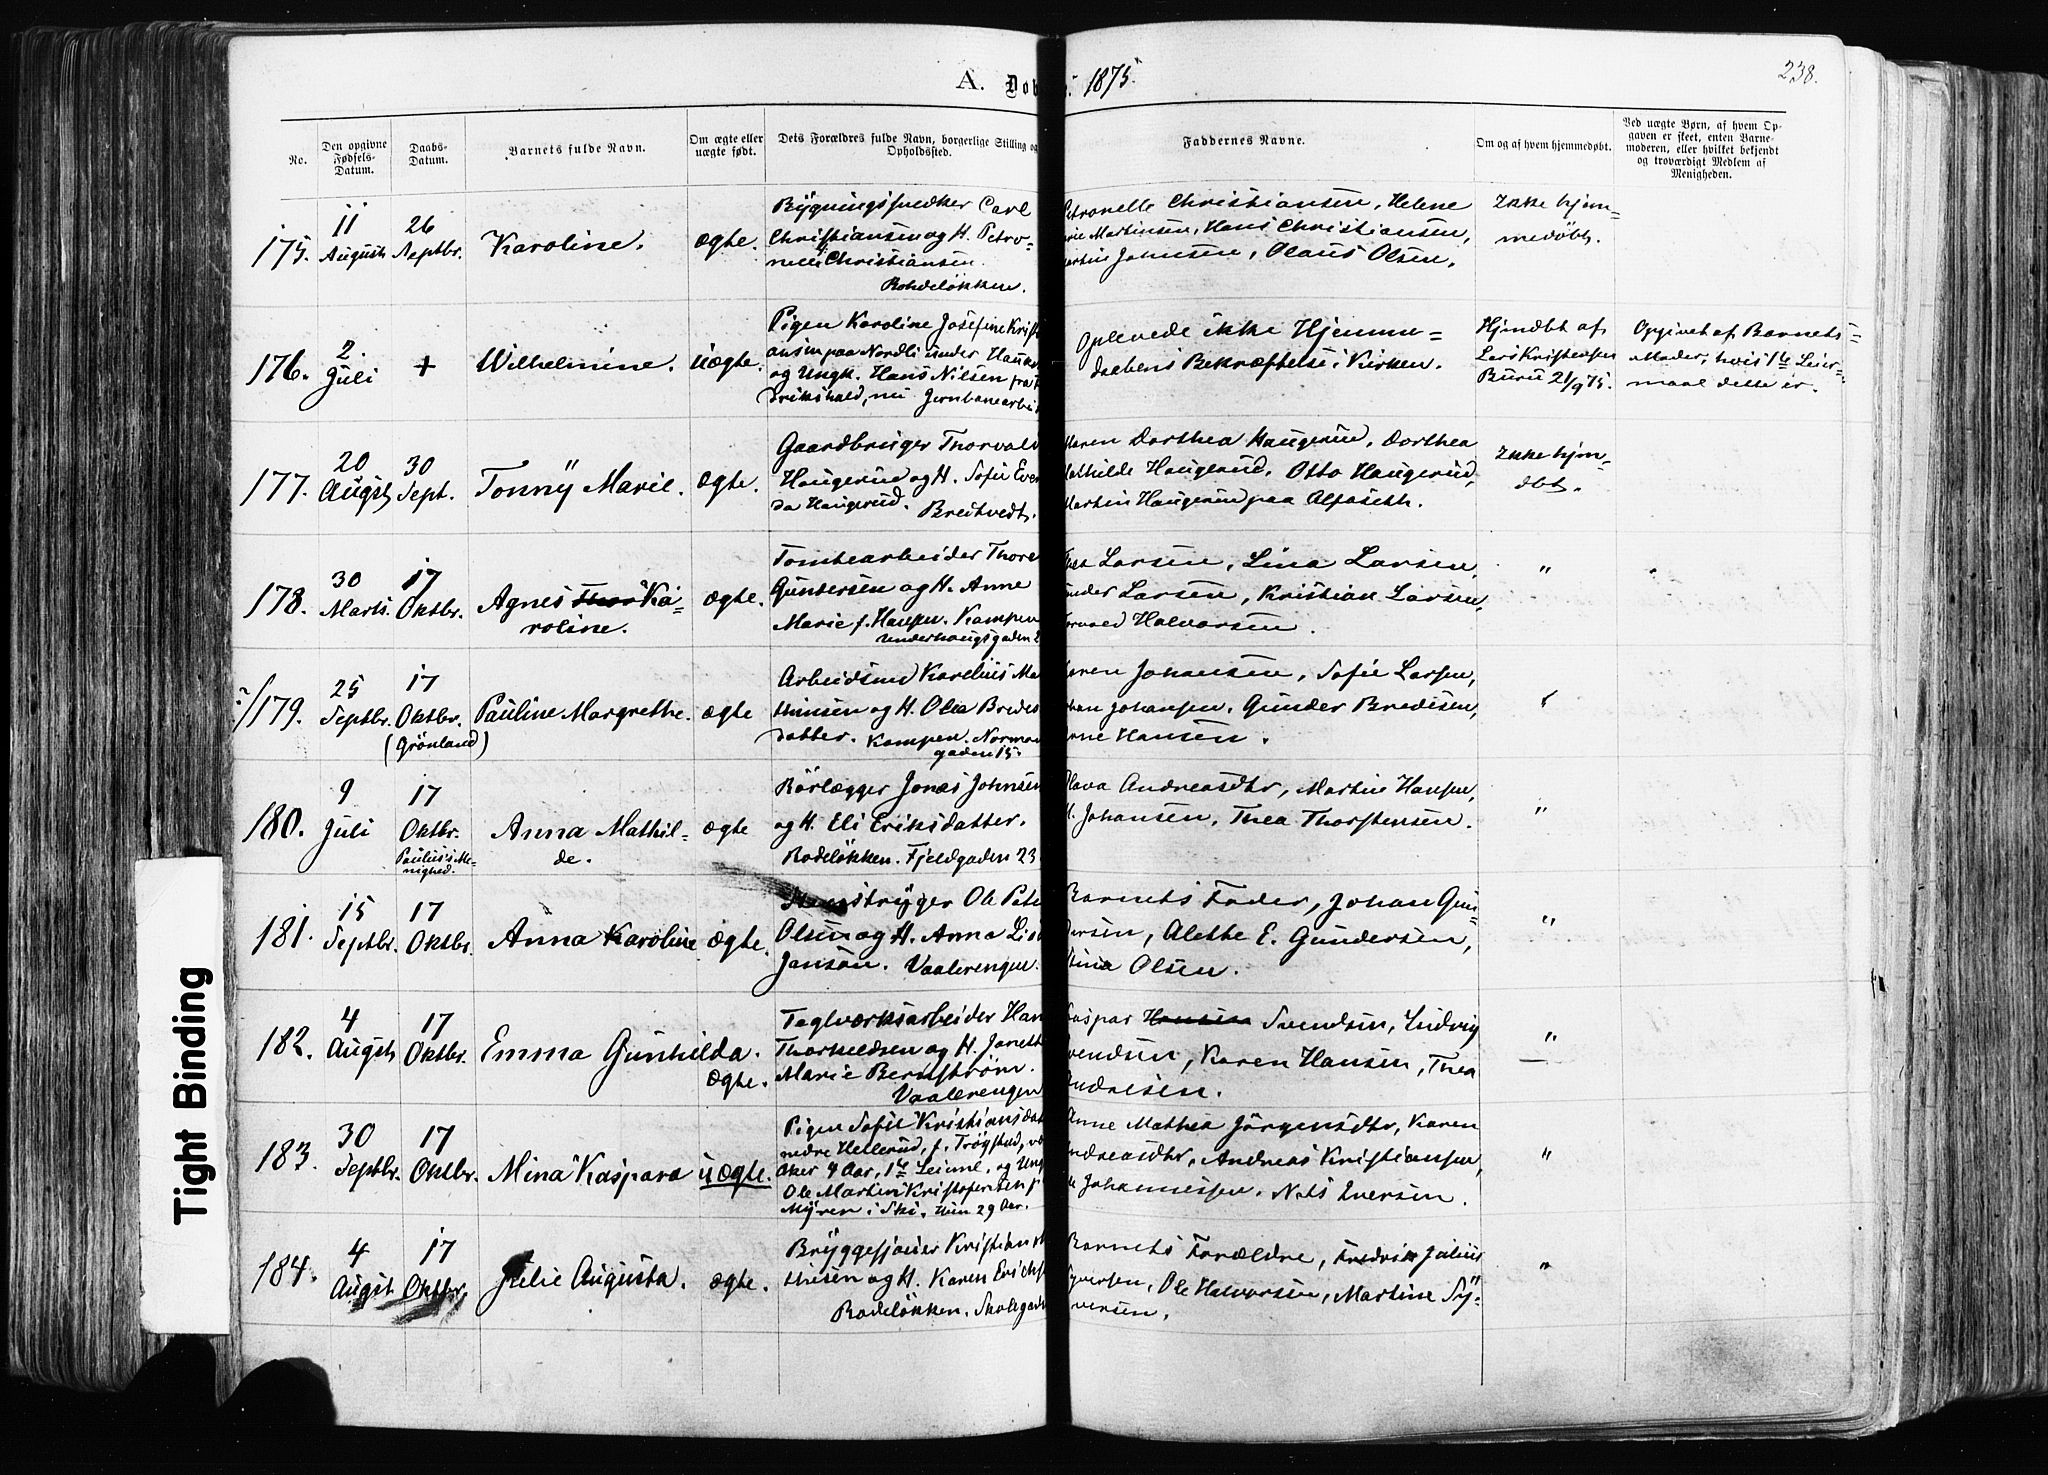 A. Dob 1875.
238.
No.
Den opgivne Fødsels-Datum.
Daabs-Datum.
Barnets fulde Navn.
Om ægte eller uægte født.
Dets Forældres fulde Navn, borgerlige Stilling og Opholdssted.
Faddernes Navne.
Om og af hvem hjemmedøbt.
Ved uægte Børn, af hvem Opgaven er skeet, enten Barnemoderen, eller hvilket bekjendt og troværdigt Medlem af Menigheden.
175. 11 August 26 Septbr. Karoline. ægte.
Bygningssnedker Carl
Christiansen og H. Petro-
nelle Christiansen
Rodeløkken.
Petronelle Christiansen, Helene
Martinsen, Hans Christiansen,
Johnsen, Olaus Olsen.
Ikke hjem-
medøbt.
176. 2 Juli + Wilhelmine. uægte.
Pigen Karoline Josefine Krist
ansen paa Nordli under Hauke
og Ungk. Hans Nilsen fra F
drikshald, nu Jernbanearbei
Oplevede ikke Hjemme=
daabens Bekræftelse i Kirken.
Hjmdbt af
Lars Kristensen
Buru 21/9 75.
Opgivet af Barnets
Moder, hvis 1ste Leier-
maal dette er.
177. 20 Augst 30 Sept. Tonny Marie. ægte.
Gaardbruger Thorvald
Haugerud og H. Sofie Even
da Haugerud. Bredtvedt.
Maren Dorthea Haugerud, Dorthea
Mathilde Haugerud, Otto Haugerud,
Martin Haugerud paa Alfaseth.
Ikke hjm-
dbt.
178. 30 Marts 17 Oktbr. Agnes Thor Ka-
roline. ægte.
Tomtearbeider Thore
Gundersen og H. Anne
Marie f. Hansen. Kampen
Underhaugsgaden 2
Larsen, Lina Larsen,
Gunder Larsen, Kristian Larsen,
Torvald Halvorsen.
"
179. 25 Septbr. 17 Oktbr. (Grønland) Pauline Margrethe. ægte
Arbeidsmd Karelius Ma
thinsen og H. Olea Bredes
datter. Kampen. Norman
gaden 15.
Maren Johansen, Sofie Larsen,
Johan Johansen, Gunder Bredesen,
Hansen.
"
180. 9 Juli 17 Oktbr. Paulus's Me-
nighed. Anna Mathil-
de. ægte
Rørlægger Jonas Johnsen
og H. Eli Eriksdatter.
Rodeløkken. Fjeldgaden 23
Olava Andreasdtr, Martin Hansen,
Johansen, Thea Thorstensen.
"
181. 15 Septbr. 17 Oktbr. Anna Karoline ægte.
stryger Ole Peter
Olsen og H. Anna Lisa
Janson. Vaalerengen.
Barnets Fader, Johan Gun-
dersen, Alethe E. Gundersen,
Stina Olsen.
"
182. 4 Augst 17 Oktbr. Emma Gunhilda. ægte.
Teglverksarbeider Han
Thorkildsen og H. Janett
Marie Bernstrøm.
Vaalerengen
Kaspar Hansen Svendsen, Ludvig
Svendsen, Karen Hansen, Thea
Andresen.
"
183. 30 Septbr. 17 Oktbr. Mina Kaspara uægte.
Pigen Sofie Kristiansdat
nedre Hellerud, f. Trøgstad,
Aker 4 Aar, 1ste Leierml. og Ung
Ole Martin Kristofersen p
Myren i Ski. Hun 29 Aar.
Anne Mathea Jørgensdtr, Karen
Andreasdtr, Andreas Kristiansen,
Ole Johannessen, Nils Iversen.
"
184. 4 Augst 17 Oktbr. Julie Augusta. ægte.
Bryggesjouer Kristian
thisen og H. Karen Erichs
Rodeløkken. Skolegad
Barnets Forældre, Fredrik Julius
Syversen, Ole Halvorsen, Martine Sy-
versen.
"
Tight Binding